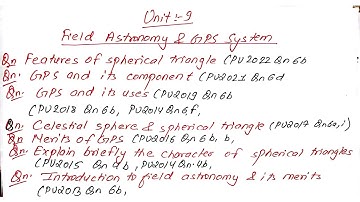 Unit:-9
Field Astronomy & GPS System
Qn Features of spherical triangle (PU2022 Qn 6b
Qn. GPS and its component (PU2021 Qn 6d
Qn. GPS and its uses (PU2019 Qn 6b
(PU2018 Qn 6b, PU2014 Qn 6f,
Qn. Celestial sphere & spherical triangle (PU2017 Qn 6a,i)
Qn Merits of GPS (PU2016 Qn 6b, b,
Qn. Explain briefly the character of spherical triangles
(PU2015 Qn 4b, PU2014 Qn. 4b,
Qn. Introduction to field astronomy & its merits
(PU2013 Qn 6b,